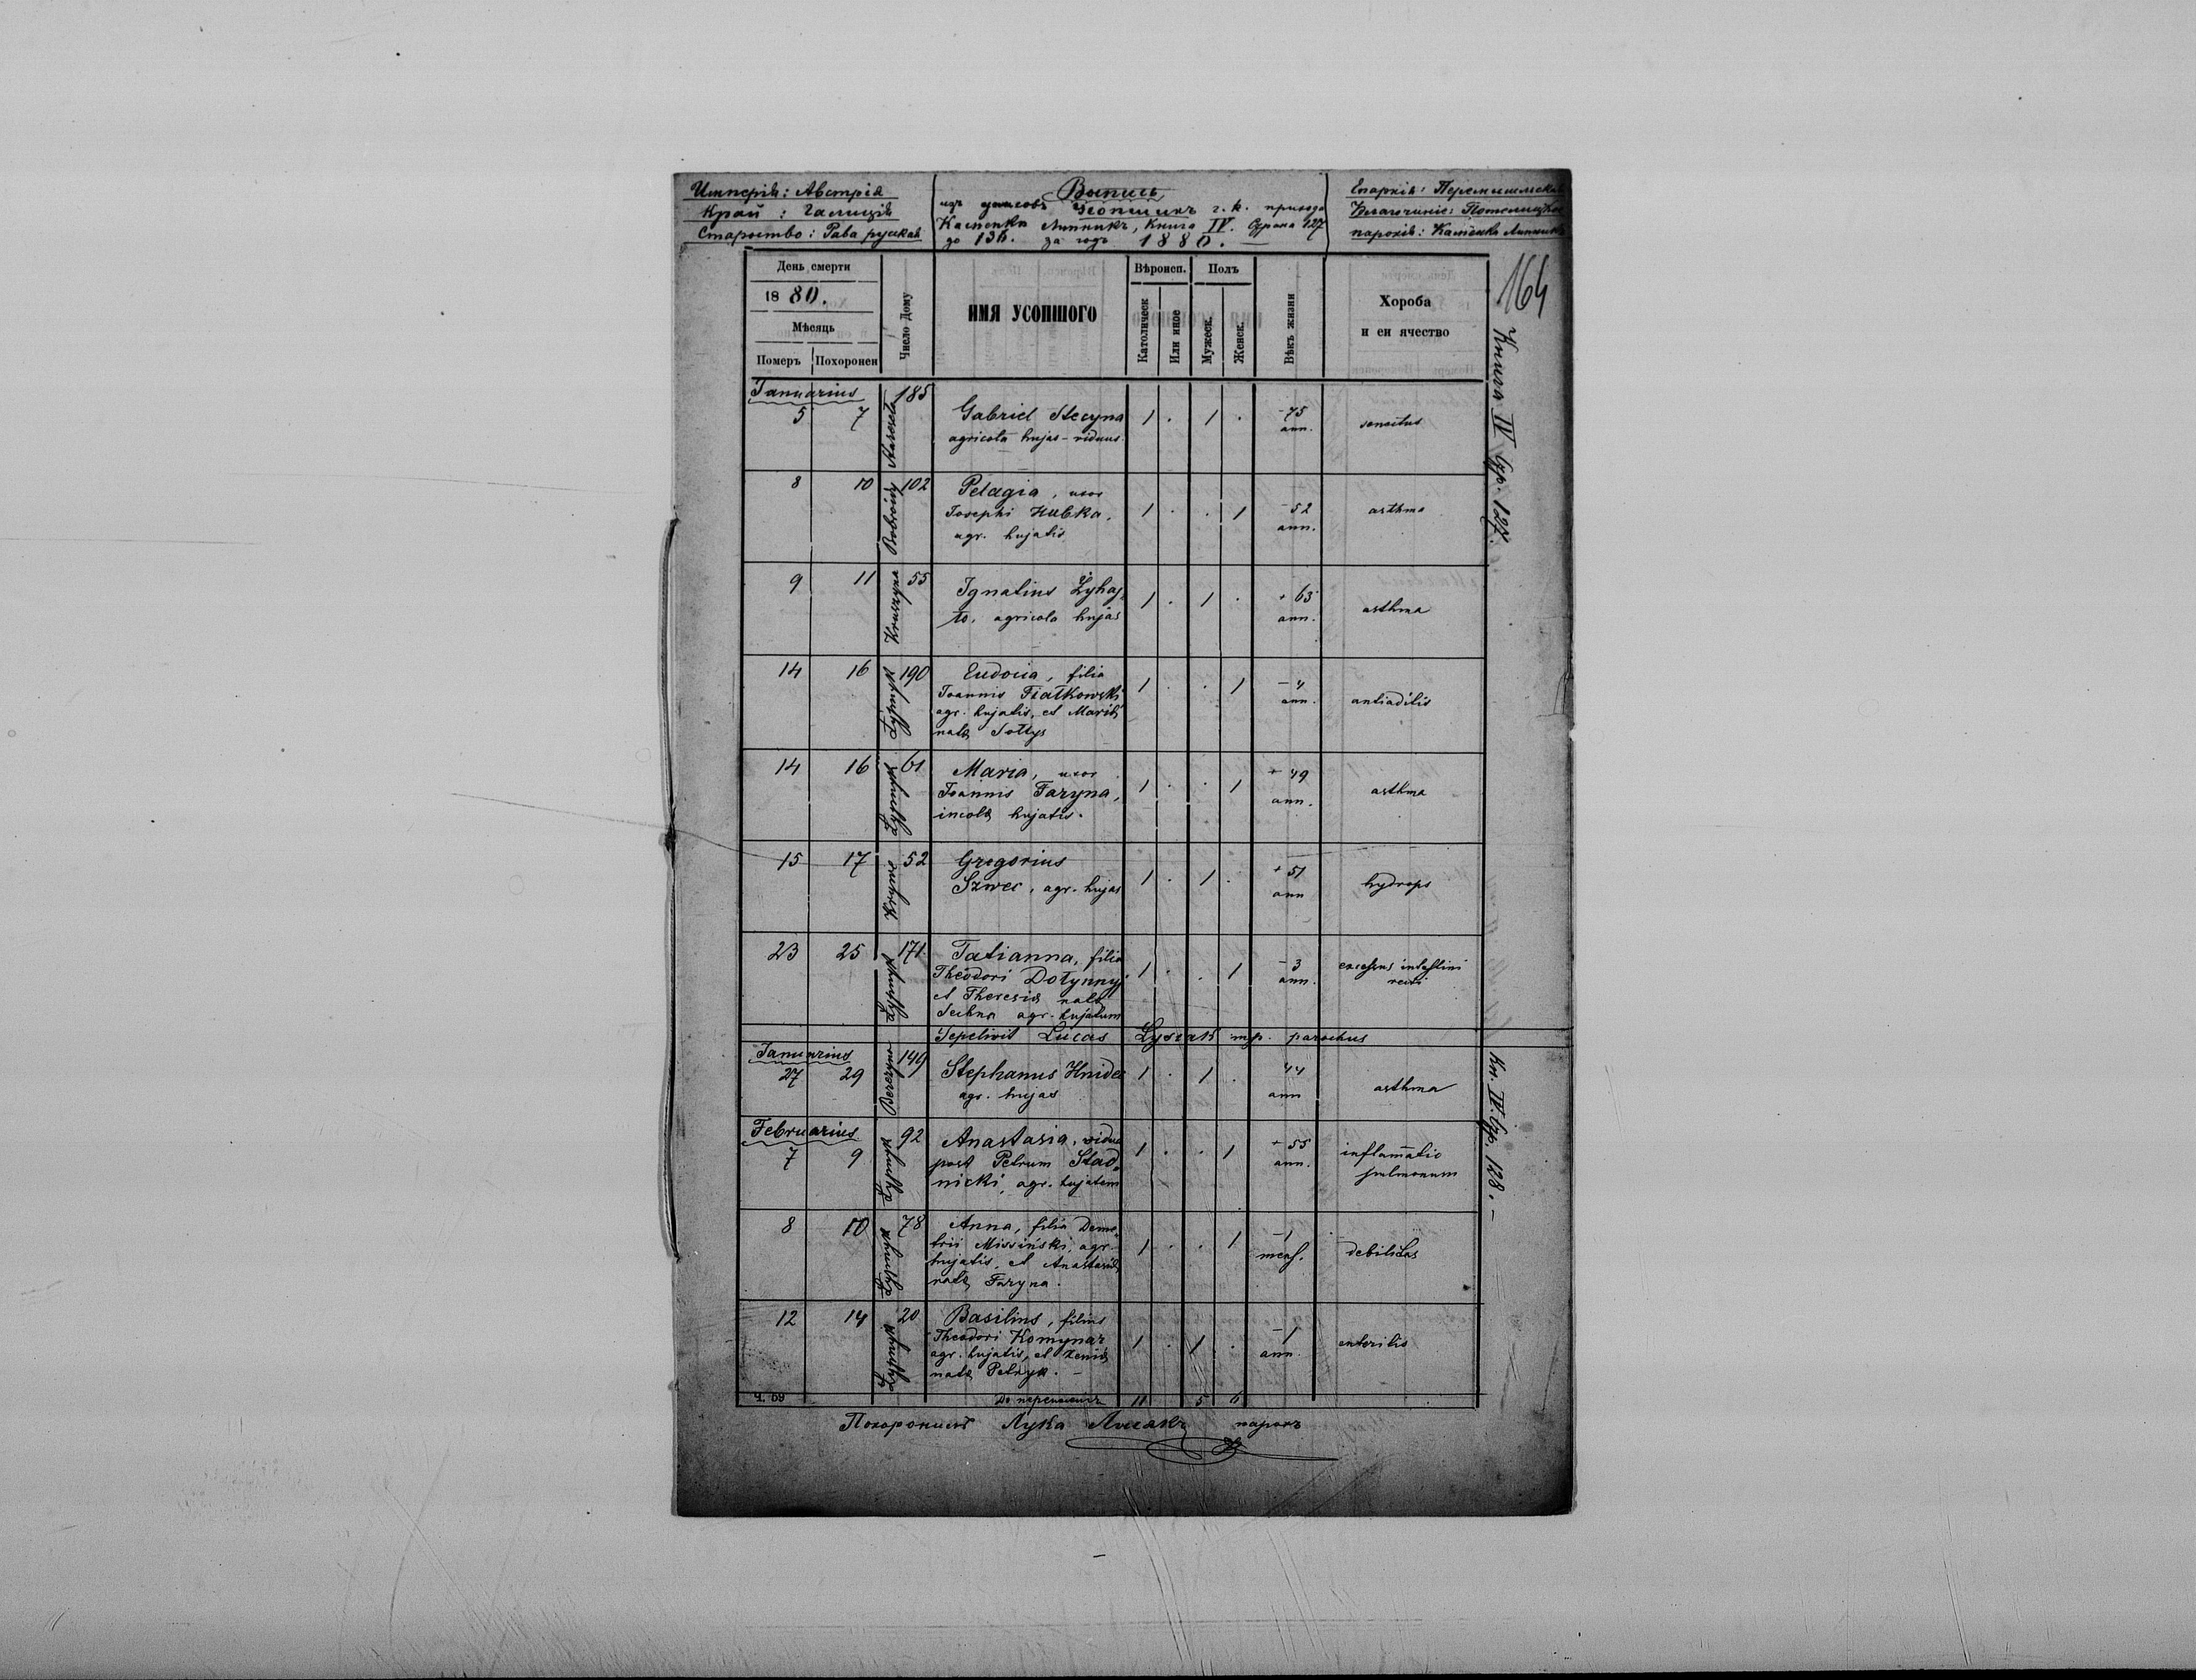 Имперія: Австрія
Край : Галиція
Староство: Рава руская
Выпись
изъ усопшихъ г. к. прихода
Каменка Липникъ, Книга IV. Страна 127
до 136. за годъ 1880.
Епархія: Перемышльска
Благочиніе: Потелицкое
парохія: Каменка Липникъ
164
День смерти
1880.
Мѣсяць
Померъ Похоронен
Число Дому
ИМЯ УСОПШОГО
Вѣроисп.
Католическ
Или иное
Полъ
Мужеск.
Женск.
Вѣкъ жизни
Хороба
и еи ячество
Книга IV Стр. 127.
Januarius
5 7 185 Gabriel Stecyna 1 . 1 . 75
agricola hujas - viduus ann.
8 10 Bobroidy 102 Pelagia, uxor
Josephi Hubka, 1 . . 1 - 52 asthma
agr. hujatis ann.
9 11 Kruszyna 55 Ignatius Żyhaj-
to, agricola hujas 1 . 1 . + 63 asthma
ann.
14 16 Łypnyk 190 Eudocia, filia
Joannis Fiałkowski 1 . . 1 - 4
agr. hujatis, et Mariæ ann.
natæ Sołtys
14 16 Łypnyk 61 Maria, uxor
Joannis Faryna, 1 . . 1 + 49 asthma
incolæ hujatis. ann.
15 17 Krywe 52 Gregorius
Szwec, agr. hujas 1 . 1 . + 51 hydrops
ann
23 25 Łypnyk 171. Tatianna, filia
Theodori Dołynnyj 1 . . 1 - 3 intestini
et Theresiæ natæ ann. recti
agr. hujatum
Sepelivit Lucas Łyszak mp. parochus
Januarius
27 29 Berezyna 149 Stephanus Hnidec 1 . 1 . 44 asthma
agr. hujas ann
Kн. IV. Стр. 128. -
Februarius
7 9 Łypnyk 92 Anastasia, vidua
post Petrum Stad- 1 . . 1 + 55 inflammatio
nicki, agr. hujatem ann. pulmonum
8 10 Łypnyk 78 Anna, filia Deme-
trii Missiński, agr. 1 . . 1 - 1 debilitas
hujatis, et Anastasiæ mens.
natæ Faryna.
12 14 Łypnyk 20 Basilius, filius
Theodori Komynar 1 . 1 . - 1 enteritis
agr. hujatis, et Xeniæ ann.
natæ Petryk. -
Ч. 59 До перенесенія 11 5 6
Похоронилъ Лука Лысакъ парохъ